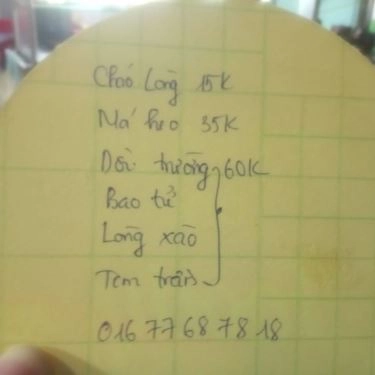 Cháo lòng 15K
Má heo 35K
Dồi trường 60K
Bao tử
Lòng xào
Tem trần
016 77 68 78 18